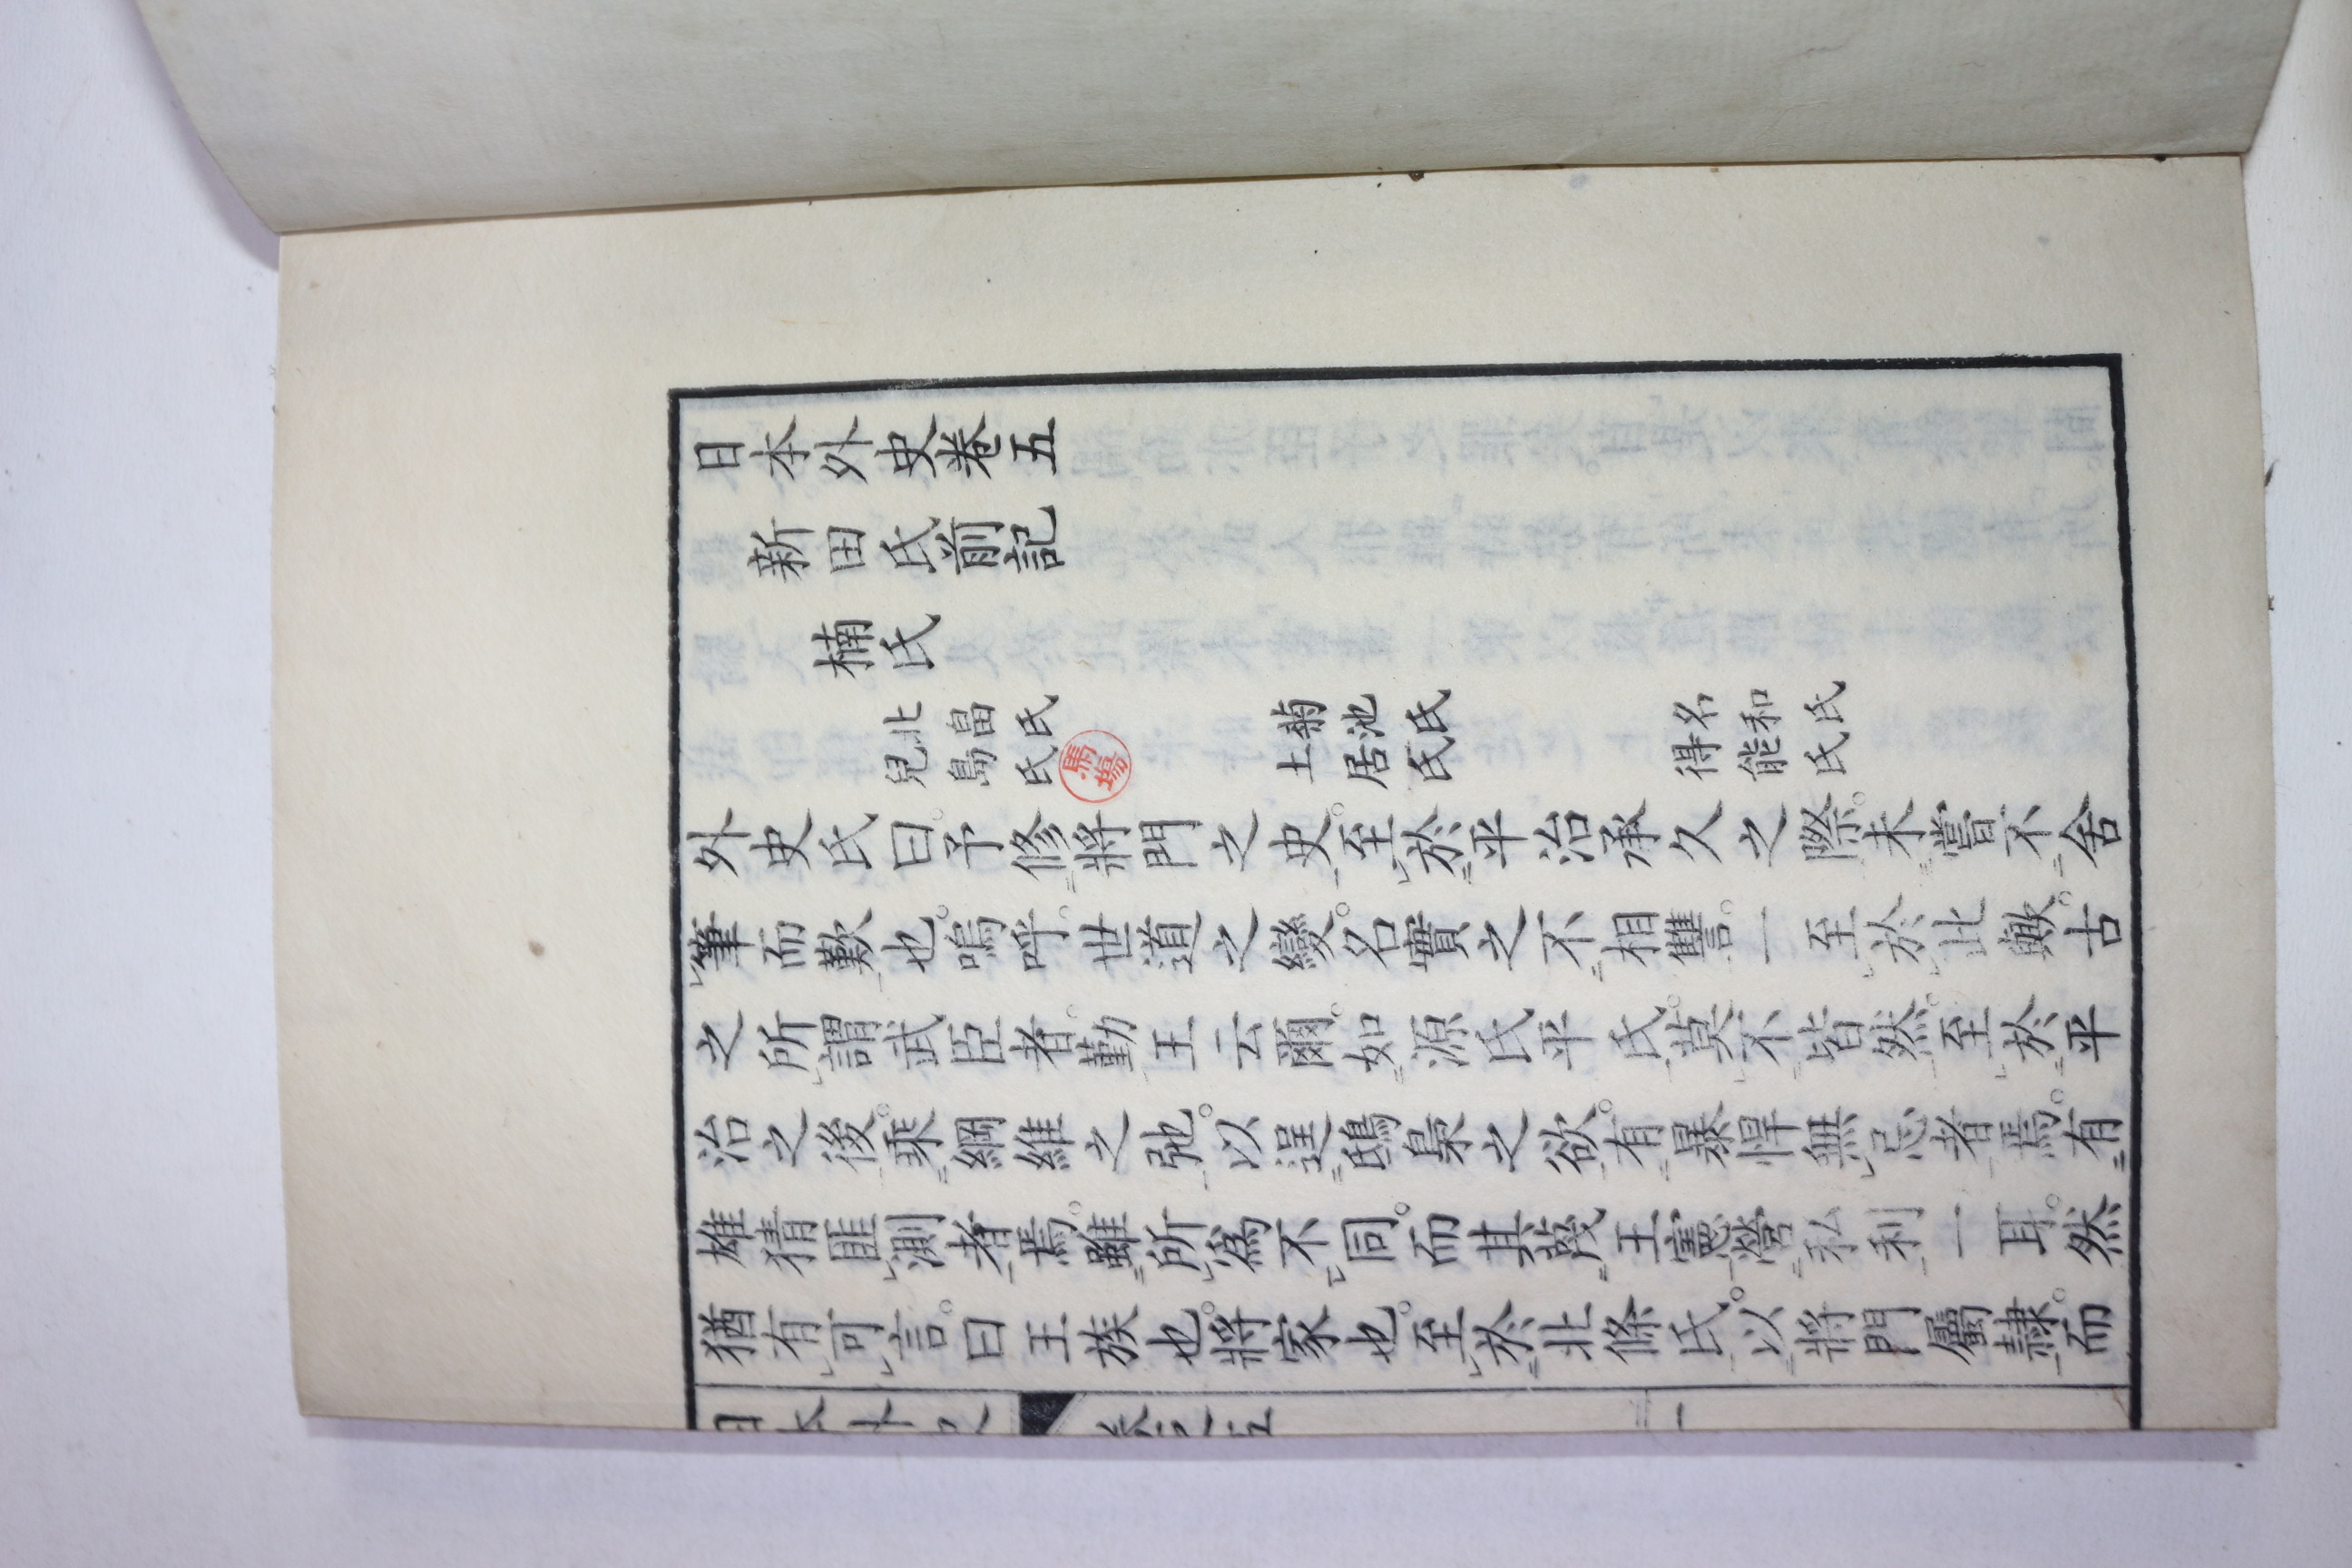 日本外史卷五
新田氏前記
楠氏
北畠氏 菊池氏 名和氏
兒島氏 土居氏 得能氏
馬場
外史氏曰。予修將門之史。至於平治承久之際。未嘗不舍
筆而歎也。嗚呼。世道之變。名實之不相讐。一至於此歟。古
之所謂武臣者。勤王云爾。如源氏平氏。莫不皆然。至於平
治之後。乘綱維之弛。以逞鴟梟之欲。有暴悍無忌者焉。有
雄猜匪測者焉。雖所爲不同。而其蔑王憲營私利一耳。然
猶有可言。曰王族也。將家也。至於北條氏。以將門屬隷。而
日本外史 卷之五 一